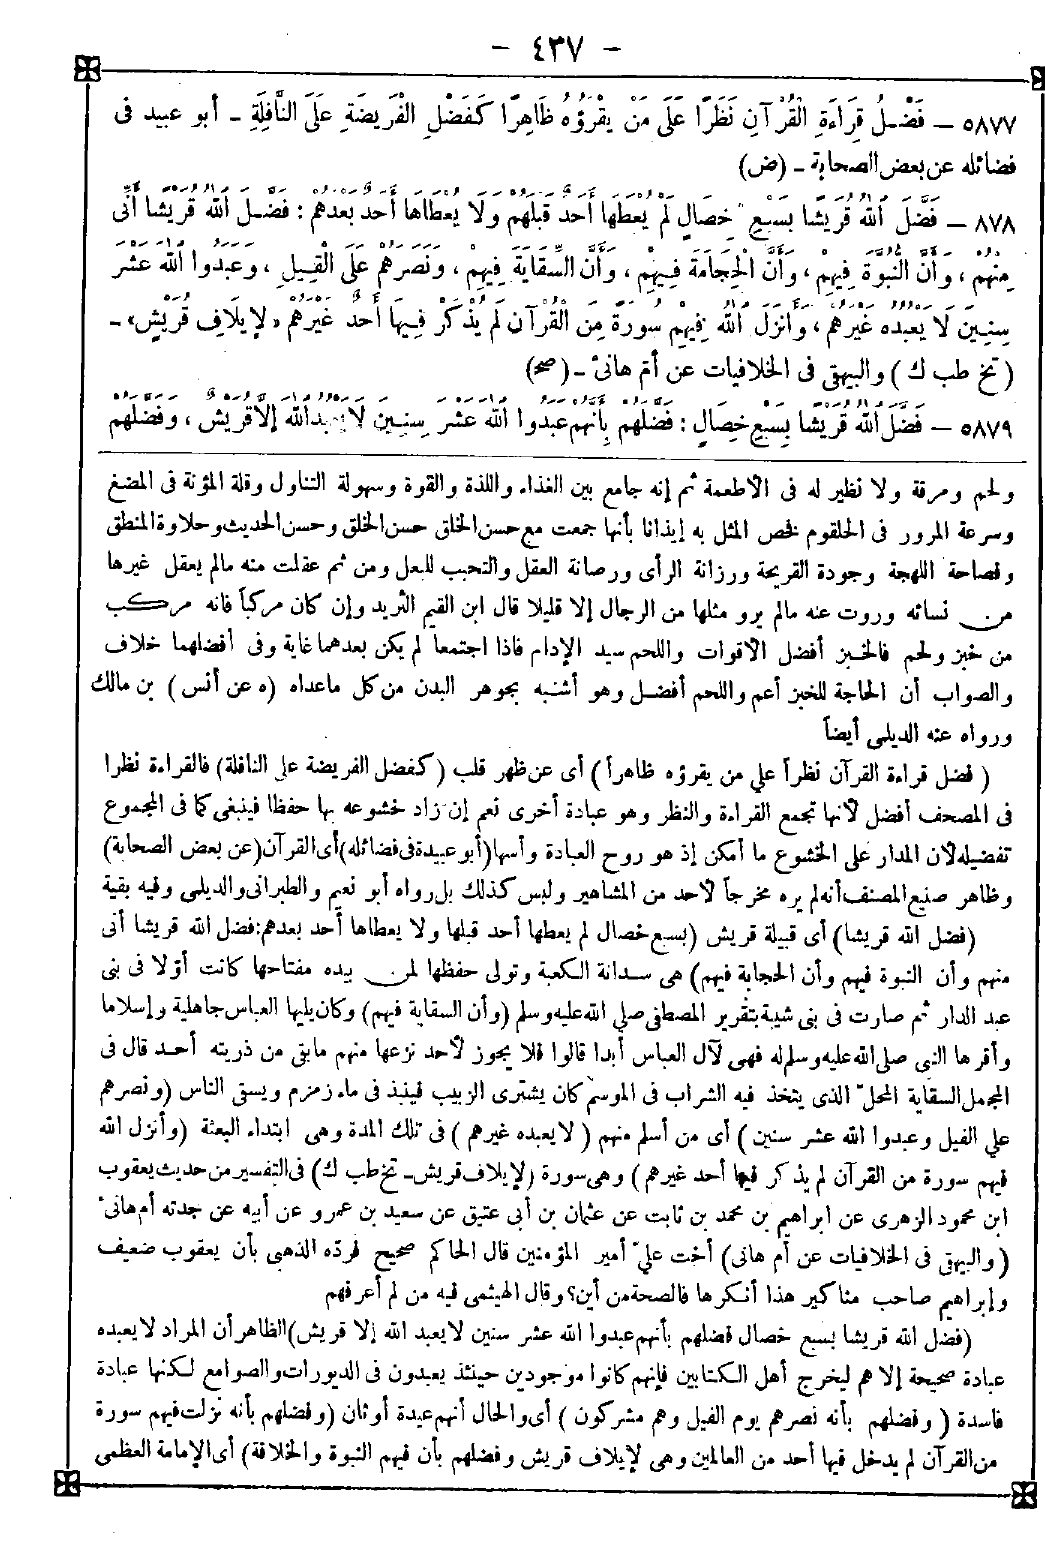 - ٤٣٧ -
٥٨٧٧ – فَضْلُ قِرَاءَةِ الْقُرْآنِ نَظَرًا عَلَى مَنْ يَقْرَؤُهُ ظَاهِرًا كَفَضْلِ الْفَرِيضَةِ عَلَى النَّافِلَةِ - أبو عبيد فى
فضائله عن بعض الصحابة - (ض)
٨٧٨ – فَضَّلَ اللهُ قُرَيْشًا بِسَبْعِ خِصَالٍ لَمْ يُعْطَهَا أَحَدٌ قَبْلَهُمْ وَلَا يُعْطَاهَا أَحَدٌ بَعْدَهُمْ : فَضَّلَ اللهُ قُرَيْشًا أَنِّى
مِنْهُمْ ، وَأَنَّ النُّبُوَّةَ فِيهِمْ ، وَأَنَّ الْحِجَامَةَ فِيهِمْ ، وَأَنَّ السِّقَايَةَ فِيهِمْ ، وَنَصَرَهُمْ عَلَى الْفِيلِ ، وَعَبَدُوا اللهَ عَشْرَ
سِنِينَ لَا يَعْبُدُهُ غَيْرُهُمْ ، وَأَنْزَلَ اللهُ فِيهِمْ سُورَةً مِنَ الْقُرْآنِ لَمْ يُذْكَرْ فِيهَا أَحَدٌ غَيْرُهُمْ «لِإِيلَافِ قُرَيْشٍ» -
( تخ طب ك ) والبيهقى فى الخلافيات عن أم هانئ - (صح)
٥٨٧٩ – فَضَّلَ اللهُ قُرَيْشًا بِسَبْعِ خِصَالٍ : فَضَّلَهُمْ بِأَنَّهُمْ عَبَدُوا اللهَ عَشْرَ سِنِينَ لَا يَعْبُدُ اللهَ إِلَّا قُرَيْشٌ ، وَفَضَّلَهُمْ
ولحم ومرقة ولا نظير له فى الأطعمة ثم إنه جامع بين الغذاء واللذة والقوة وسهولة التناول وقلة المؤنة فى المضغ
وسرعة المرور فى الحلقوم فخص المثل به إيذانا بأنها جمعت مع حسن الخلق حسن الخلق وحسن الحديث وحلاوة المنطق
وفصاحة اللهجة وجودة القريحة ورزانة الرأى ورصانة العقل والتحبب للبعل ومن ثم عقلت منه مالم يعقل غيرها
من نسائه وروت عنه مالم يرو مثلها من الرجال إلا قليلا قال ابن القيم الثريد وإن كان مركباً فانه مركب
من خبز ولحم فالخبز أفضل الأقوات واللحم سيد الإدام فاذا اجتمعا لم يكن بعدهما غاية وفى أفضلهما خلاف
والصواب أن الحاجة للخبز أعم واللحم أفضل وهو أشنبه بجوهر البدن من كل ماعداه (ه عن أنس) بن مالك
ورواه عنه الديلمى أيضاً
( فضل قراءة القرآن نظراً على من يقرؤه ظاهراً ) أى عن ظهر قلب (كفضل الفريضة على النافلة) فالقراءة نظرا
فى المصحف أفضل لأنها تجمع القراءة والنظر وهو عبادة أخرى نعم إن زاد خشوعه بها حفظا فينبغى كما فى المجموع
تفضيله لأن المدار على الخشوع ما أمكن إذ هو روح العبادة وأسها (أبو عبيدة فى فضائله) أى القرآن (عن بعض الصحابة)
وظاهر صنيع المصنف أنه لم يره مخرجاً لأحد من المشاهير وليس كذلك بل رواه أبو نعيم والطبرانى والديلمى وفيه بقية
(فضل الله قريشا) أى قبيلة قريش (بسبع خصال لم يعطها أحد قبلها ولا يعطاها أحد بعدهم: فضل الله قريشا أنى
منهم وأن النبوة فيهم وأن الحجابة فيهم) هى سدانة الكعبة وتولى حفظها لمن بيده مفتاحها كانت أولا فى بنى
عبد الدار ثم صارت فى بنى شيبة بتقرير المصطفى صلى الله عليه وسلم (وأن السقاية فيهم) وكان يليها العباس جاهلية وإسلاما
وأقرها النبى صلى الله عليه وسلم له فهى لآل العباس أبدا قالوا فلا يجوز لأحد نزعها منهم مابقى من ذريته أحد قال فى
المجمل السقاية المحل الذى يتخذ فيه الشراب فى الموسم كان يشترى الزبيب فينبذ فى ماء زمزم ويسقى الناس (ونصرهم
على الفيل وعبدوا الله عشر سنين ) أى من أسلم منهم ( لا يعبده غيرهم ) فى تلك المدة وهى ابتداء البعثة (وأنزل الله
فيهم سورة من القرآن لم يذكر فيها أحد غيرهم ) وهى سورة (لإيلاف قريش - تخ طب ك) فى التفسير من حديث يعقوب
ابن محمود الزهرى عن ابراهيم بن محمد بن ثابت عن عثمان بن أبى عتيق عن سعيد بن عمرو عن أبيه عن جدته أم هانئ
( والبيهقى فى الخلافيات عن أم هانى) أخت علىّ أمير المؤمنين قال الحاكم صحيح فردّه الذهبى بأن يعقوب ضعيف
وإبراهيم صاحب مناكير هذا أنكرها فالصحة من أين؟ وقال الهيثمى فيه من لم أعرفهم
(فضل الله قريشا بسبع خصال فضلهم بأنهم عبدوا الله عشر سنين لا يعبد الله إلا قريش) الظاهر أن المراد لا يعبده
عبادة صحيحة إلا هم ليخرج أهل الكتابين فإنهم كانوا موجودين حينئذ يعبدون فى الديورات والصوامع لكنها عبادة
فاسدة ( وفضلهم بأنه نصرهم يوم الفيل وهم مشركون ) أى والحال أنهم عبدة أوثان (وفضلهم بأنه نزلت فيهم سورة
من القرآن لم يدخل فيها أحد من العالمين وهى لإيلاف قريش وفضلهم بأن فيهم النبوة والخلافة) أى الإمامة العظمى